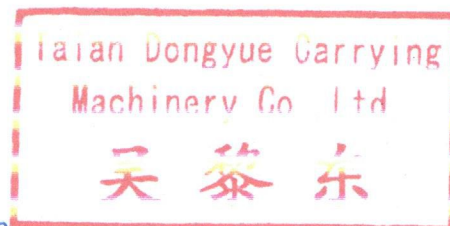 Taian Dongyue Carrying
Machinery Co Ltd
吴黎东